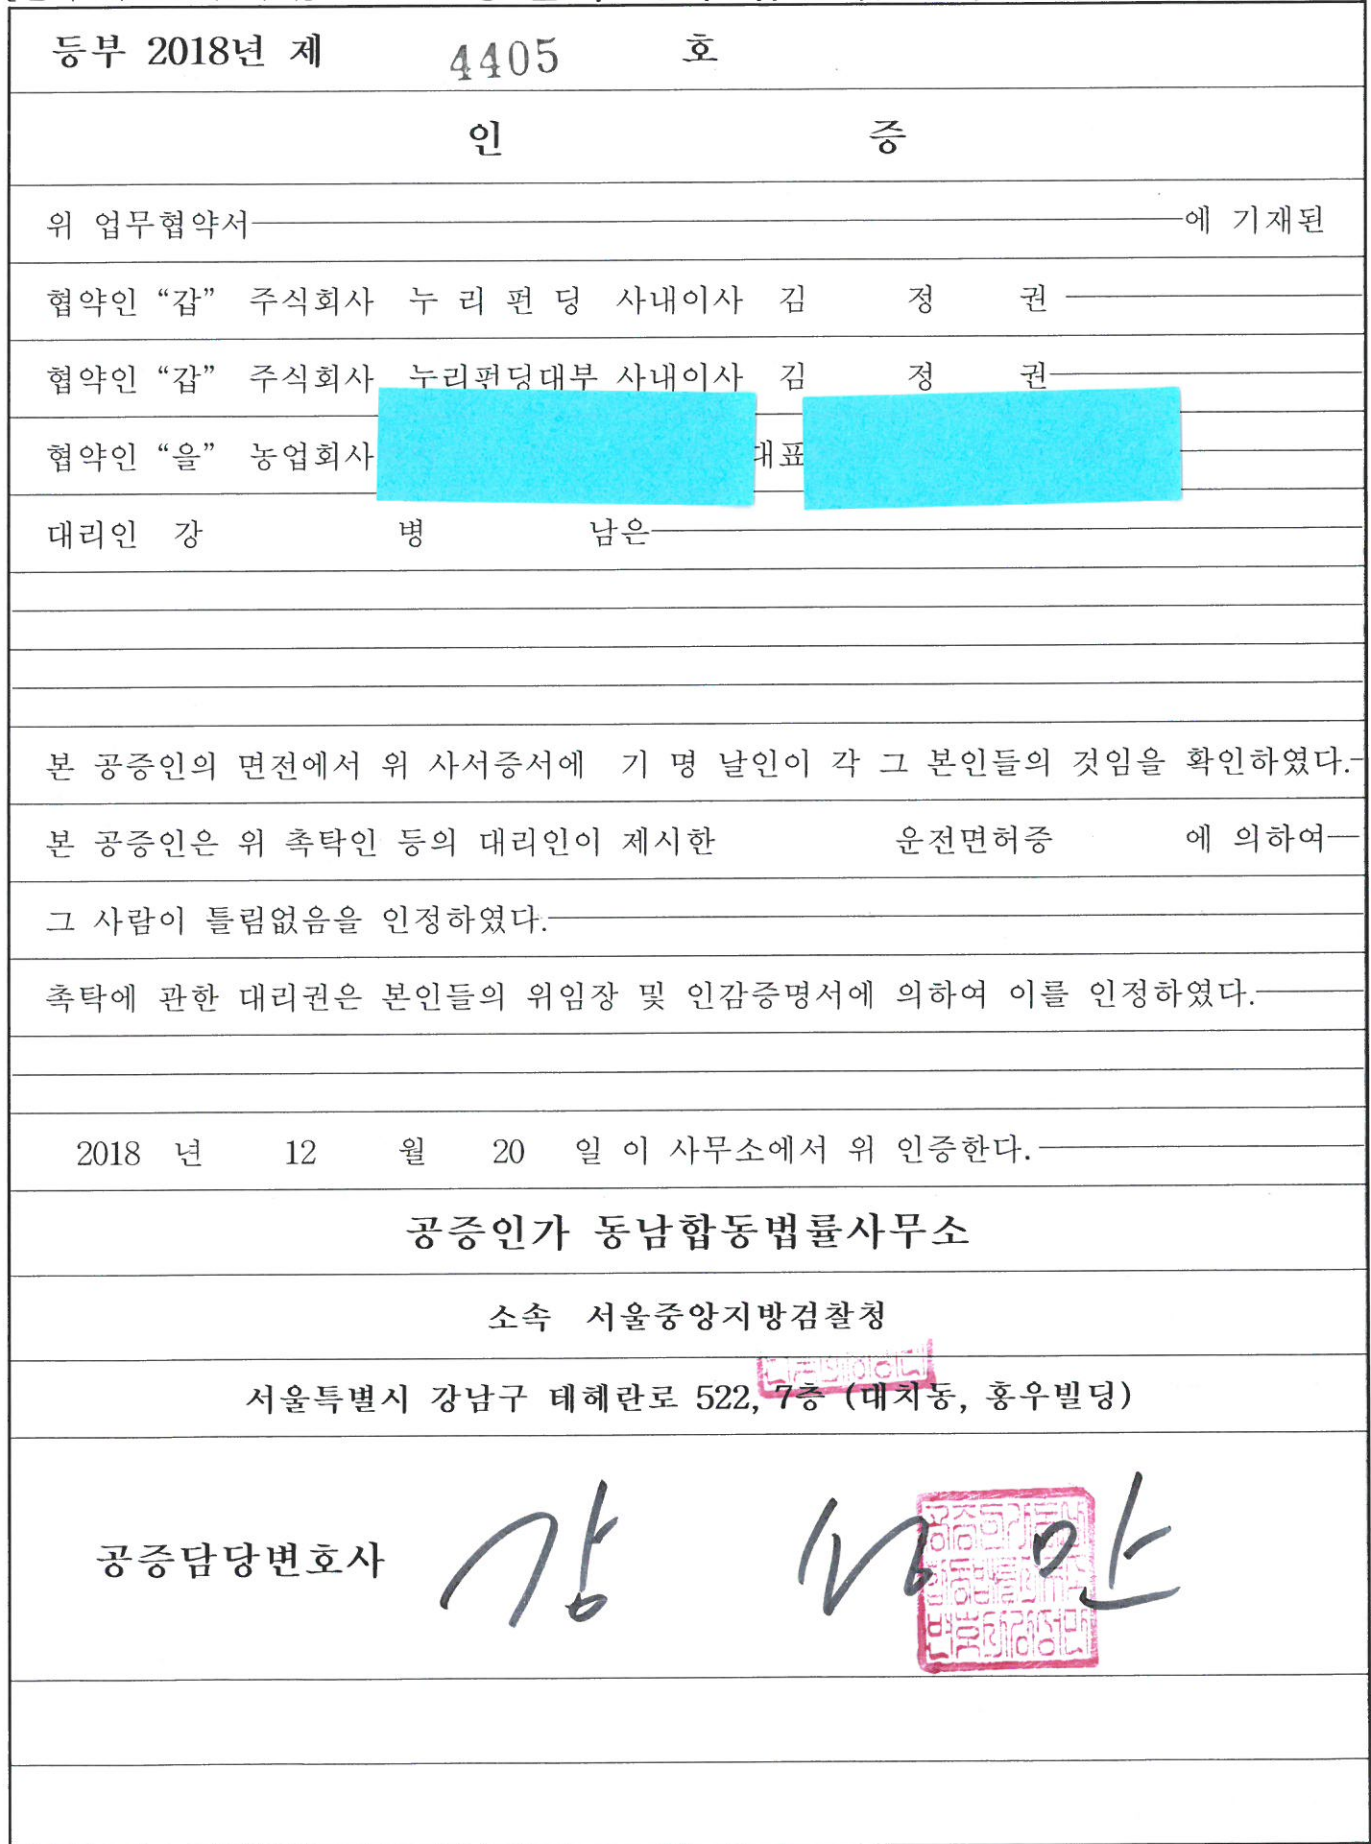 등부 2018년 제 4405 호
인 증
위 업무협약서 에 기재된
협약인 “갑” 주식회사 누 리 펀 딩 사내이사 김 정 권
협약인 “갑” 주식회사 누리펀딩대부 사내이사 김 정 권
협약인 “을” 농업회사 대표
대리인 강 병 남은
본 공증인의 면전에서 위 사서증서에 기 명 날인이 각 그 본인들의 것임을 확인하였다.
본 공증인은 위 촉탁인 등의 대리인이 제시한 운전면허증 에 의하여
그 사람이 틀림없음을 인정하였다.
촉탁에 관한 대리권은 본인들의 위임장 및 인감증명서에 의하여 이를 인정하였다.
2018 년 12 월 20 일 이 사무소에서 위 인증한다.
공증인가 동남합동법률사무소
소속 서울중앙지방검찰청
서울특별시 강남구 테헤란로 522, 7층 (대치동, 홍우빌딩)
공증담당변호사